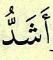 أَشَدُّ